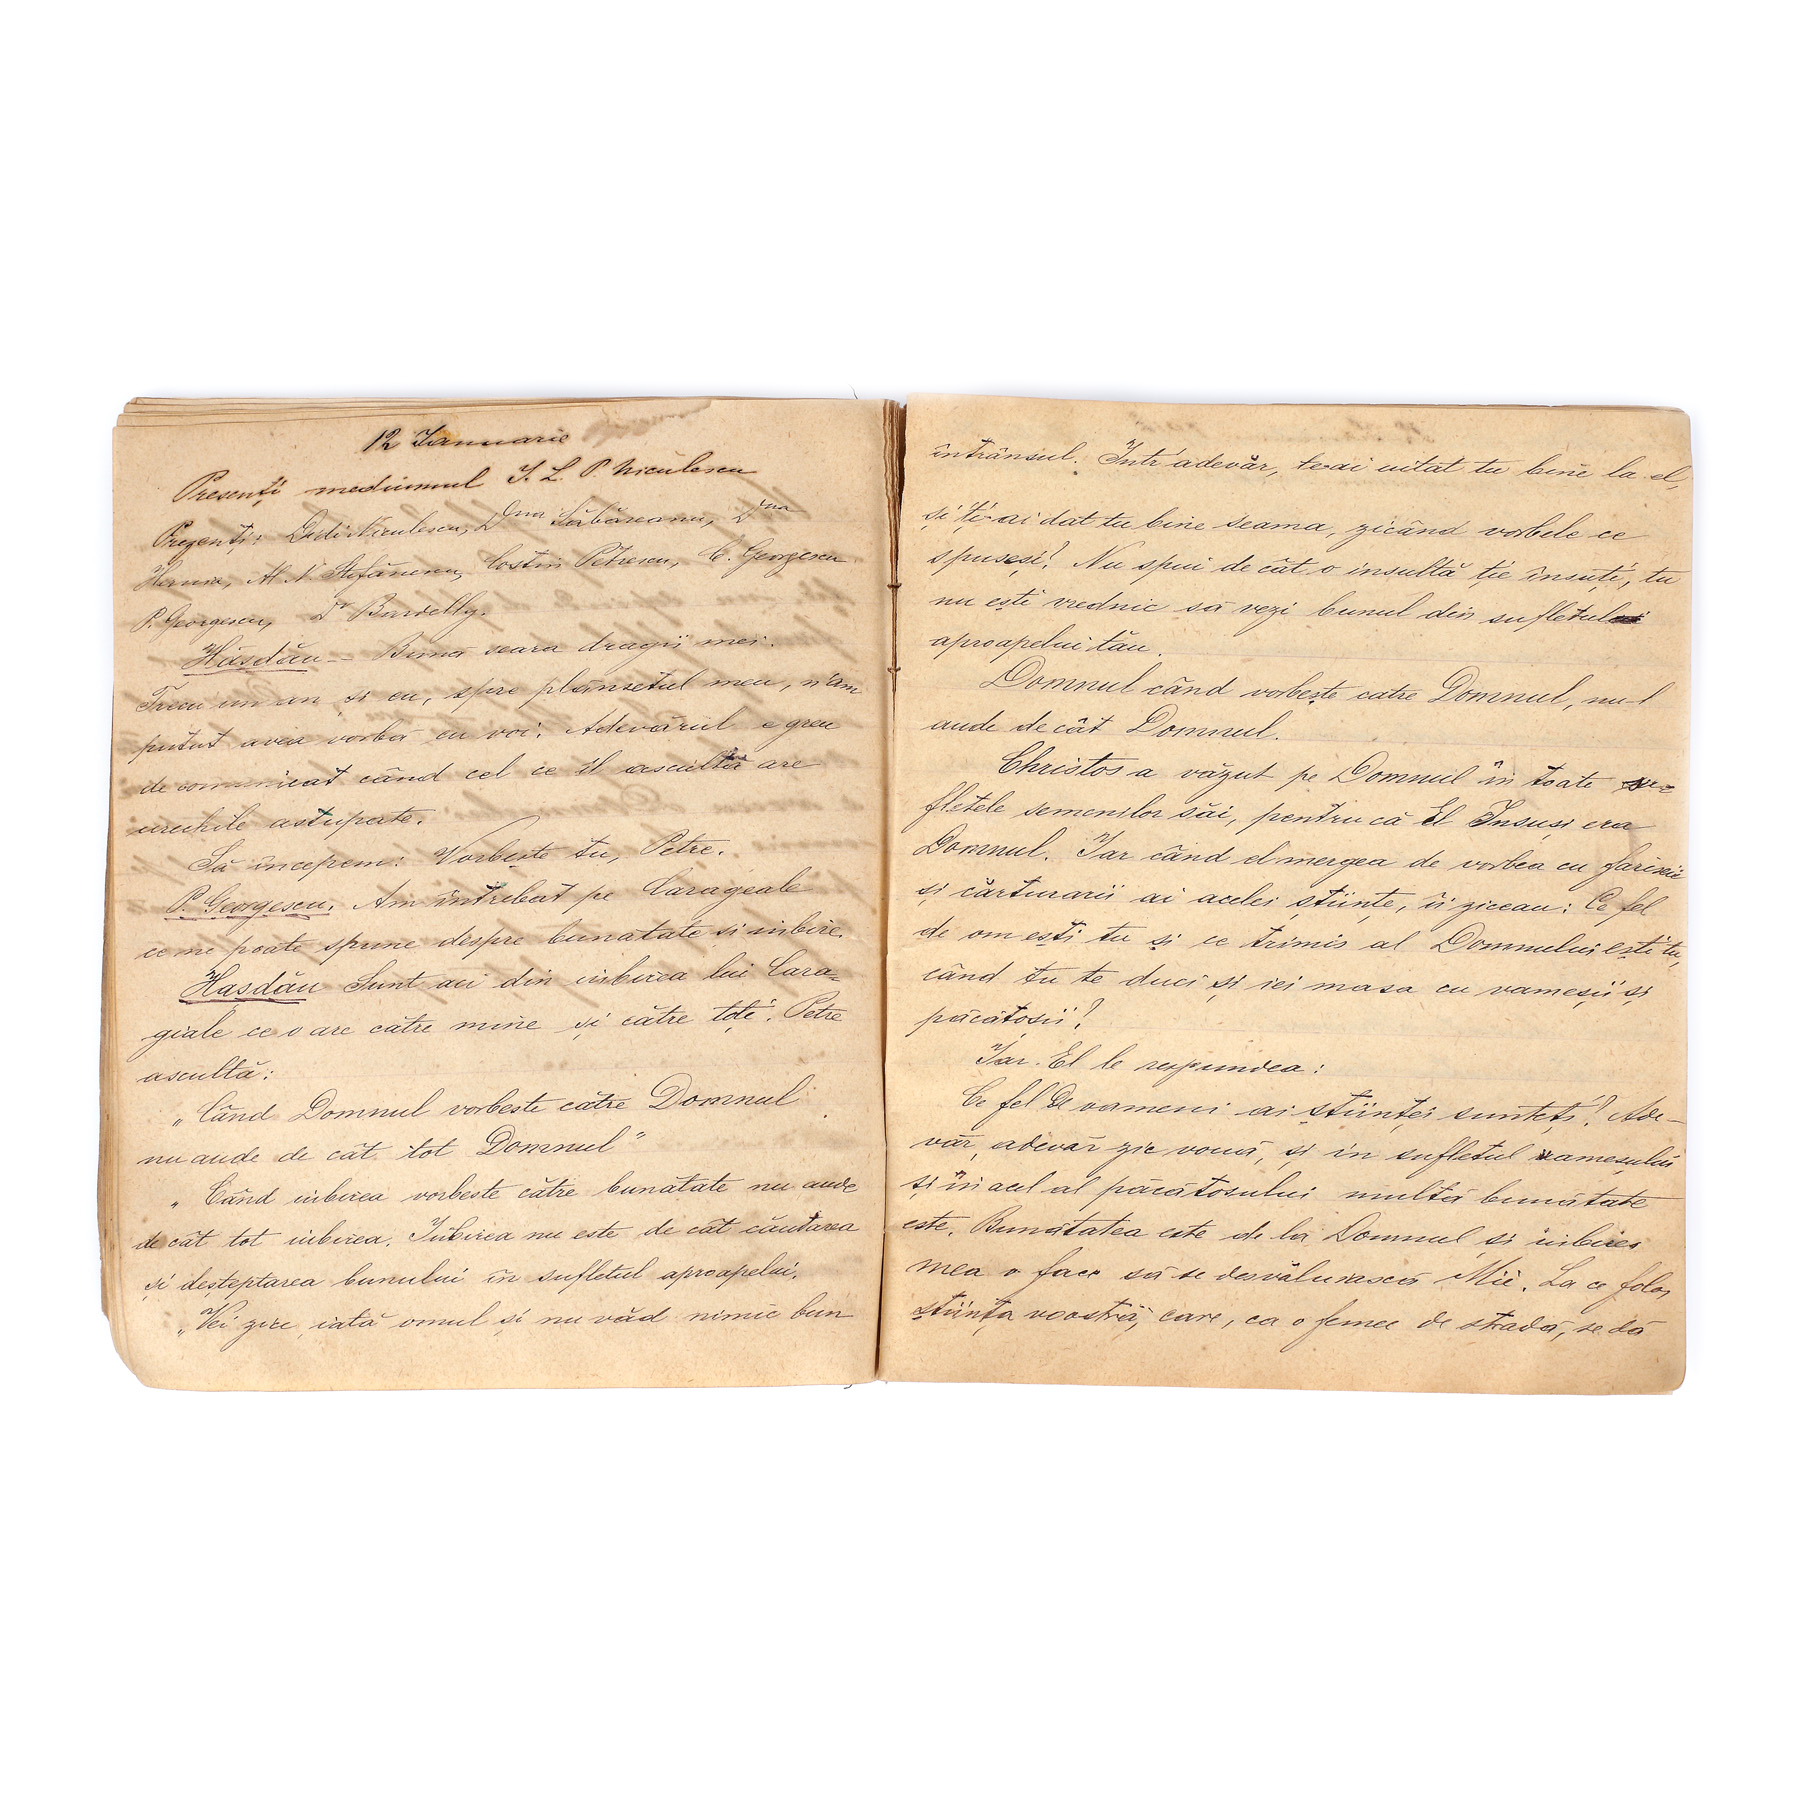 12 Ianuarie
Presenți mediumul I. L. P. Niculescu
Prezenți: Didi Niculescu, Dna Săbăreanu, Dna
Al N Ștefănescu, Costin Petrescu, C. Georgescu
P. Georgescu, Dr
Hasdău — Bună seara dragii mei.
Trecu un an și eu, spre plânsetul meu, n'am
putut avea vorbă cu voi. Adevărul e greu
de comunicat când cel ce îl ascultă are
urechile astupate.
Să începem: Vorbește tu, Petre.
P. Georgescu. Am întrebat pe Carageale
ce ne poate spune despre bunatate si iubire.
Hasdău Sunt aci din iubirea lui Cara-
giale ce o are către mine și către toți. Petre
ascultă:
„Când Domnul vorbeste către Domnul
nu aude de cât tot Domnul"
„Când iubirea vorbeste către bunătate nu aude
de cât tot iubirea. Iubirea nu este de cât căutarea
și deșteptarea bunului în sufletul aproapelui.
„Vei zice iată omul și nu văd nimic bun
întrânsul. Intr'adevăr, te-ai uitat tu bine la el,
și ți-ai dat tu bine seama, zicând vorbele ce
spuseși? Nu spui de cât o insultă ție însuți, tu
nu ești vrednic să vezi bunul din sufletul
aproapelui tău.
Domnul când vorbește catre Domnul, nu-l
aude de cât Domnul.
Christos a văzut pe Domnul în toate su-
fletele semenilor săi, pentru că El Insuși era
Domnul. Iar când el mergea de vorbea cu fariseii
și cărturarii ai acelei științe, îi ziceau: Ce fel
de om ești tu și ce trimis al Domnului ești tu,
când tu te duci și iei masa cu vameșii și
păcătoșii?
Iar El le respundea:
Ce fel de oameni ai științei sunteți? Ade-
văr, adevăr zic vouă, și în sufletul vameșului
și în acel al păcătosului multă bunătate
este. Bunătatea este de la Domnul și iubirea
mea o face să se desvăluiască Mie. La ce folos
știința voastră, care, ca o femee de stradă, se dă